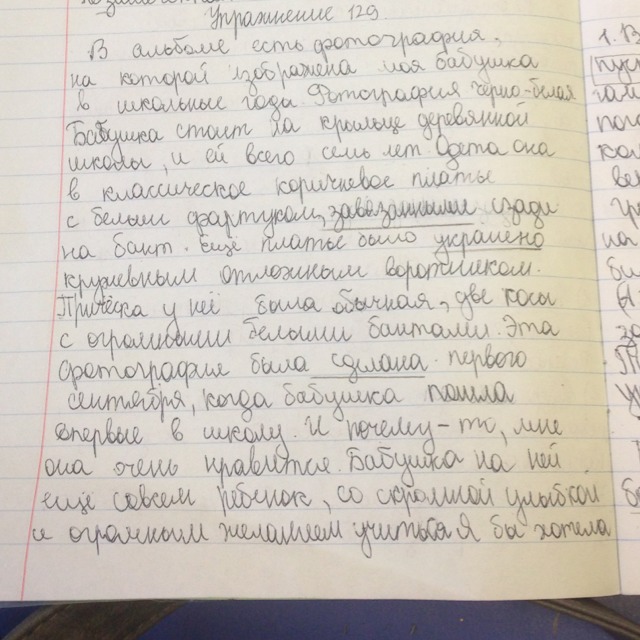 Упражнение 129.
В альбоме есть фотография,
на которой изображена моя бабушка
в школьные года. Фотография чёрно-белая
Бабушка стоит на крыльце деревянной
школы, и ей всего семь лет. Одета она
в классическое коричневое платье
с белым фартуком, завязанным сзади
на бант. Ещё платье было украшено
кружевным отложным воротником.
Причёска у неё была обычная, две косы
с огромными белыми бантами. Эта
фотография была сделана первого
сентября, когда бабушка пошла
впервые в школу. И почему-то, мне
она очень нравится. Бабушка на ней
ещё совсем ребёнок, со скромной улыбкой
и огромным желанием учиться Я бы хотела
1. В